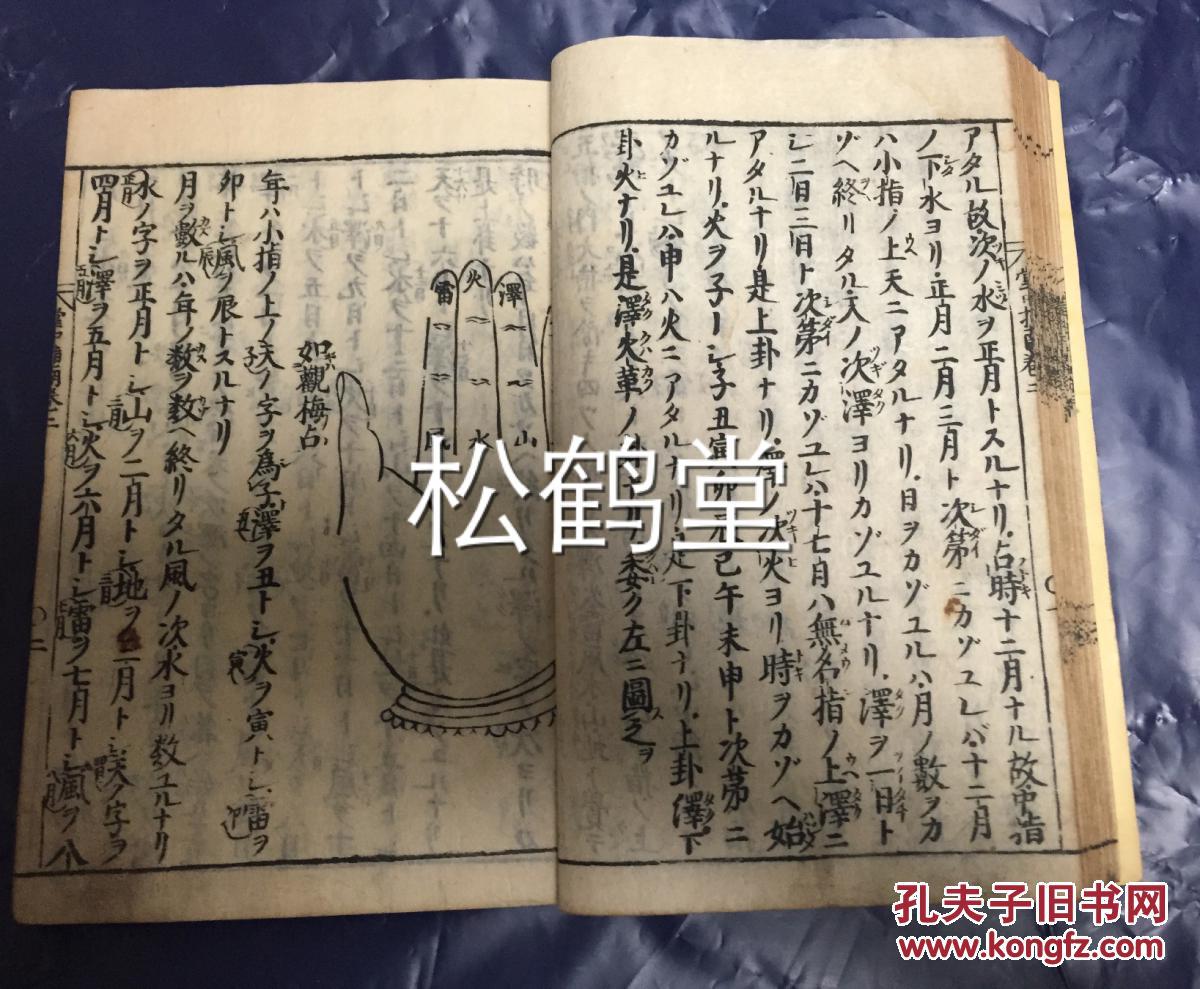 アタル故次ノ水ヲ正月トスルナリ占時十二月ナル故中指
ノ下水ヨリ正月二月三月ト次第ニカゾユレバ十二月
ハ小指ノ上天ニアタルナリ日ヲカゾユルハ月ノ數ヲカ
ゾヘ終リタル天ノ次澤ヨリカゾユルナリ澤ヲ一日ト
シ二日三日ト次第ニカゾユレハ十七日ハ無名指ノ上澤ニ
アタルナリ是上卦ナリ澤ノ次火ヨリ時ヲカゾヘ始
ルナリ火ヲ子トシ子丑寅卯辰巳午未申ト次第ニ
カゾユレハ申ハ火ニアタルナリ是下卦ナリ上卦澤下
卦火ナリ是澤火革ノ卦ナリ委ク左ニ圖之ヲ
澤
火
雷
山
水
風
如觀梅占
年ハ小指ノ上ノ天ノ字ヲ為子澤ヲ丑トシ火ヲ寅トシ雷ヲ
卯トシ風ヲ辰トスルナリ
月ヲ數ルハ年ノ数ヲ数ヘ終リタル風ノ次水ヨリ数ユルナリ
水ノ字ヲ正月トシ山ヲ二月トシ地ヲ三月トシ天ノ字ヲ
四月トシ澤ヲ五月トシ火ヲ六月トシ雷ヲ七月トシ風ヲ八
松鹤堂
孔夫子旧书网
www.kongfz.com